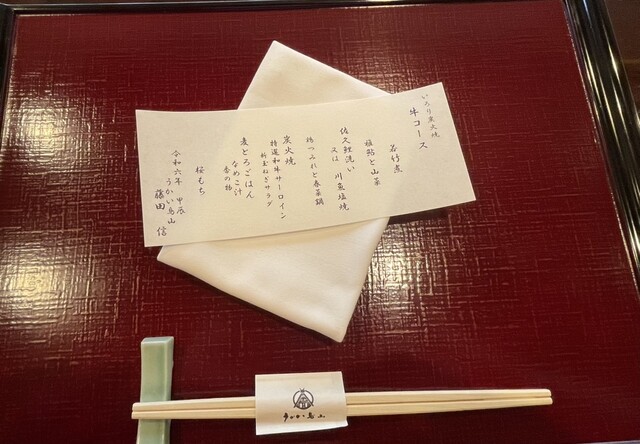 いろり炭火焼
牛コース
若竹煮
稚鮎と山菜
佐久鯉洗い
又は 川魚塩焼
鶏つみれと春菜鍋
炭火焼
特選和牛サーロイン
新玉ねぎサラダ
麦とろごはん
なめこ汁
香の物
桜もち
令和六年 甲辰
うかい鳥山
藤田 信
うかい鳥山